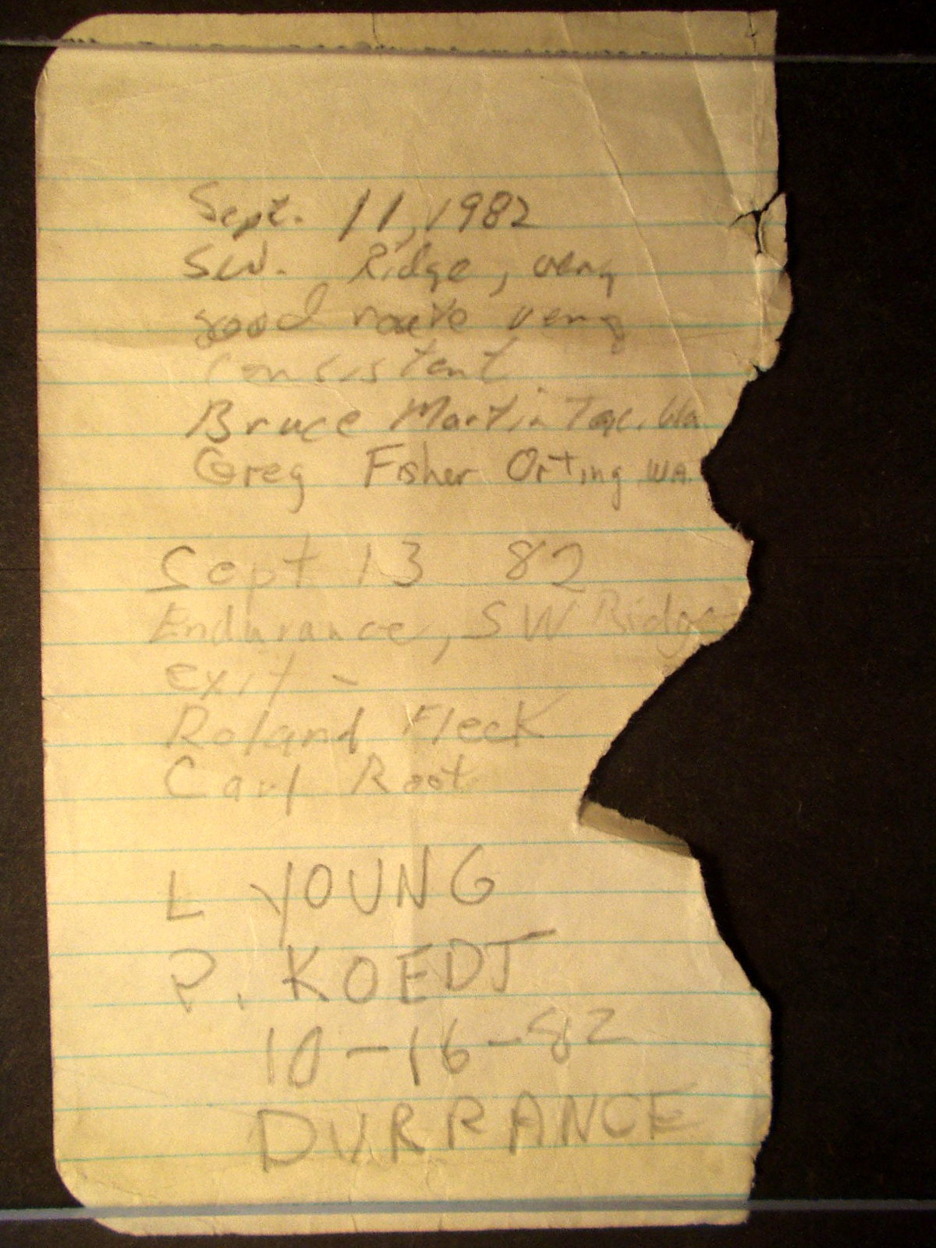 Sept. 11, 1982
SW. Ridge, very
good route very
Consistent
Bruce Martin Tac. Wa
Greg Fisher Orting WA.
Sept 13 82
Endurance, SW Ridge
exit -
Roland Fleck
Carl Root
L YOUNG
P. KOEDT
10-16-82
DURRANCE